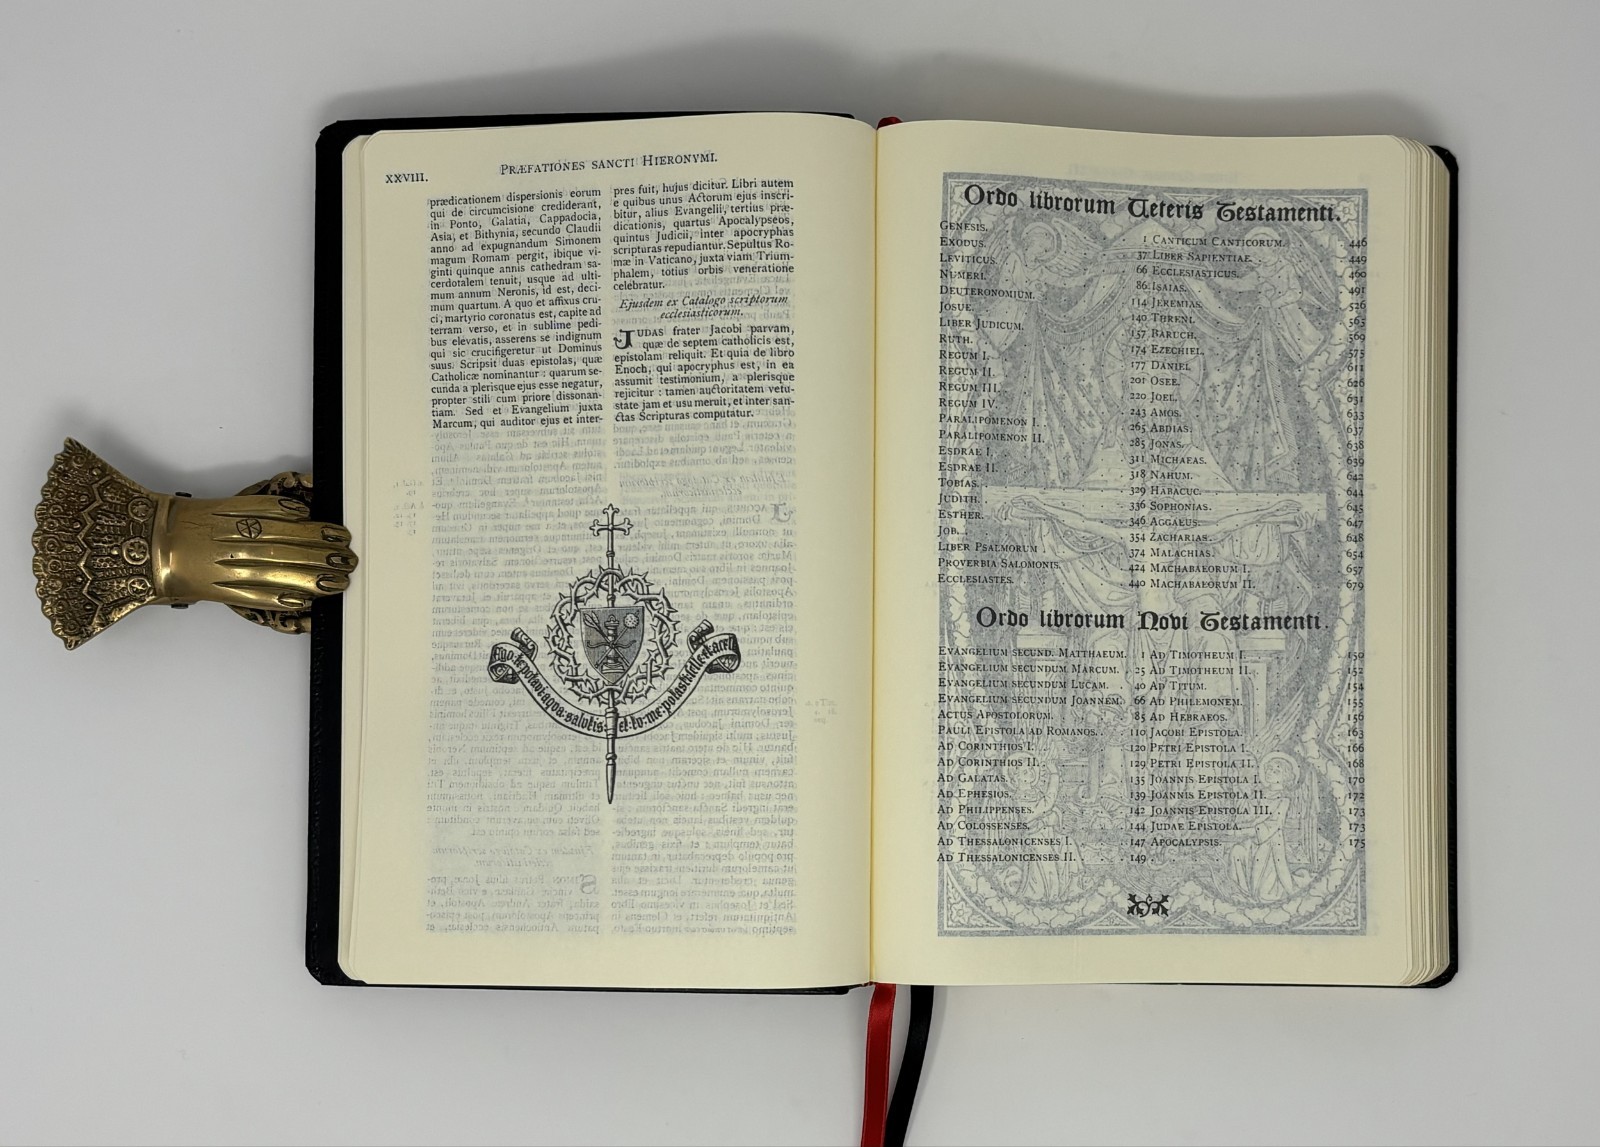 XXVIII.
PRÆFATIONES SANCTI HIERONYMI.
prædicationem dispersionis eorum
qui de circumcisione crediderant,
in Ponto, Galatia, Cappadocia,
Asia, et Bithynia, secundo Claudii
anno ad expugnandum Simonem
magum Romam pergit, ibique vi-
ginti quinque annis cathedram sa-
cerdotalem tenuit, usque ad ulti-
mum annum Neronis, id est, deci-
mum quartum. A quo et affixus cru-
ci, martyrio coronatus est, capite ad
terram verso, et in sublime pedi-
bus elevatis, asserens se indignum
qui sic crucifigeretur ut Dominus
suus. Scripsit duas epistolas, quæ
Catholicæ nominantur : quarum se-
cunda a plerisque ejus esse negatur,
propter stili cum priore dissonan-
tiam. Sed et Evangelium juxta
Marcum, qui auditor ejus et inter-
pres fuit, hujus dicitur. Libri autem
e quibus unus Actorum ejus inscri-
bitur, alius Evangelii, tertius præ-
dicationis, quartus Apocalypseos,
quintus Judicii, inter apocryphas
scripturas repudiantur. Sepultus Ro-
mæ in Vaticano, juxta viam Trium-
phalem, totius orbis veneratione
celebratur.
Ejusdem ex Catalogo scriptorum
ecclesiasticorum.
JUDAS frater Jacobi parvam,
quæ de septem catholicis est,
epistolam reliquit. Et quia de libro
Enoch, qui apocryphus est, in ea
assumit testimonium, a plerisque
rejicitur : tamen auctoritatem vetu-
state jam et usu meruit, et inter san-
ctas Scripturas computatur.
Ego te potavi aqva salvtis et tv me potasti felle et aceto
Ordo librorum Veteris Testamenti.
GENESIS. 1
EXODUS. 37
LEVITICUS. 66
NUMERI. 86
DEUTERONOMIUM. 114
JOSUE. 140
LIBER JUDICUM. 157
RUTH. 174
REGUM I. 177
REGUM II. 201
REGUM III. 220
REGUM IV. 243
PARALIPOMENON I. 265
PARALIPOMENON II. 285
ESDRAE I. 311
ESDRAE II. 318
TOBIAS. 329
JUDITH. 336
ESTHER. 346
JOB. 354
LIBER PSALMORUM 374
PROVERBIA SALOMONIS. 424
ECCLESIASTES. 440
CANTICUM CANTICORUM. 446
LIBER SAPIENTIAE. 449
ECCLESIASTICUS. 460
ISAIAS. 491
JEREMIAS. 526
THRENI. 565
BARUCH. 569
EZECHIEL. 575
DANIEL 611
OSEE. 626
JOEL. 631
AMOS. 633
ABDIAS. 637
JONAS. 638
MICHAEAS. 639
NAHUM. 642
HABACUC. 644
SOPHONIAS. 645
AGGAEUS. 647
ZACHARIAS. 648
MALACHIAS. 654
MACHABAEORUM I. 657
MACHABAEORUM II. 679
Ordo librorum Novi Testamenti.
EVANGELIUM SECUND. MATTHAEUM. 1
EVANGELIUM SECUNDUM MARCUM. 25
EVANGELIUM SECUNDUM LUCAM. 40
EVANGELIUM SECUNDUM JOANNEM. 66
ACTUS APOSTOLORUM. 85
PAULI EPISTOLA AD ROMANOS. 110
AD CORINTHIOS I. 120
AD CORINTHIOS II. 129
AD GALATAS. 135
AD EPHESIOS. 139
AD PHILIPPENSES. 142
AD COLOSSENSES. 144
AD THESSALONICENSES I. 147
AD THESSALONICENSES II. 149
AD TIMOTHEUM I. 150
AD TIMOTHEUM II. 152
AD TITUM. 154
AD PHILEMONEM. 155
AD HEBRAEOS. 156
JACOBI EPISTOLA. 163
PETRI EPISTOLA I. 166
PETRI EPISTOLA II. 168
JOANNIS EPISTOLA I. 170
JOANNIS EPISTOLA II. 172
JOANNIS EPISTOLA III. 173
JUDAE EPISTOLA. 173
APOCALYPSIS. 175